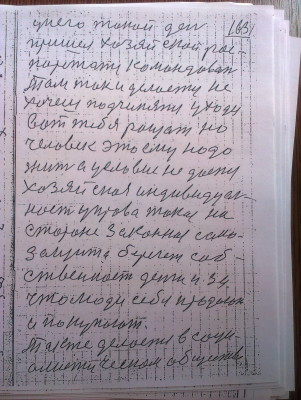 у него такой ден
пришел хозяйской рас-
порядку командовать
Там так и делается не
хочеш подчиняти уходи
Вот тебя решат но
человек этому надо
жит а условие не дают
хозяйская индивидуал-
ность управа такая на
стороне законная само-
защита берегет соб-
ственност денги и за
что люди себя продают
и покупают.
Также делается в соци-
алистическом обществе
(63)